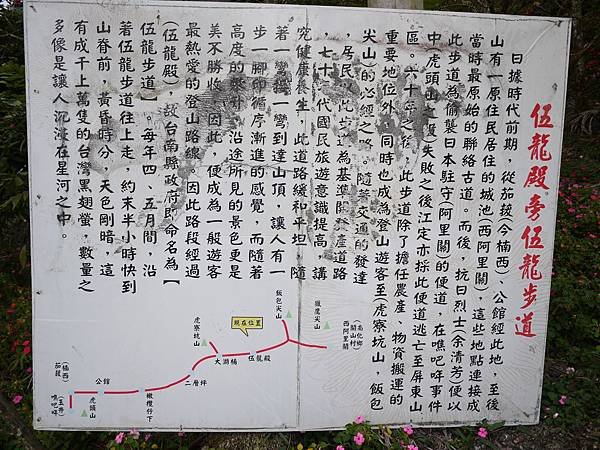 伍龍殿旁伍龍步道
日據時代前期，從茄菝(今楠西)、公館經此地，至後
山有一原住民居住的城池(西阿里關)，這些地點連接成
當時最原始的聯絡古道。而後，抗日烈士(余清芳)便以
此步道為偷襲日本駐守(阿里關)的便道，在噍吧哖事件
中虎頭山之役失敗之後江定亦採此便道逃亡至屏東山
區。六十年之後，此步道除了擔任農產、物資搬運的
重要地位外，同時也成為登山遊客至(虎寮坑山，飯包
尖山)的必經之路。隨著交通的發達
，居民以此步道為基準開發產道路
，七十年代國民旅遊意識提高，講
究健康養生，此道路緩和平坦，隨
著一彎接一彎到達山頂，讓人有一
步一腳印循序漸進的感覺，而隨著
高度的攀升，沿途所見的景色更是
美不勝收。因此，便成為一般遊客
最熱愛的登山路線。因此路段經過
(伍龍殿)，故台南縣政府即命名為【
伍龍步道】。每年四、五月間，沿
著伍龍步道往上走，約末半小時快到
山脊前，黃昏時分，天色剛暗，這
有成千上萬隻的台灣黑翅螢，數量之
多像是讓人沉浸在星河之中。
臘鷹尖山
南化鄉
關山村
西阿里關
飯包尖山
現在位置
虎寮坑山
伍龍殿
大湖桶
二層坪
橄欖仔下
公館
虎頭山
(楠西)
茄菝
(玉井)
噍吧哖